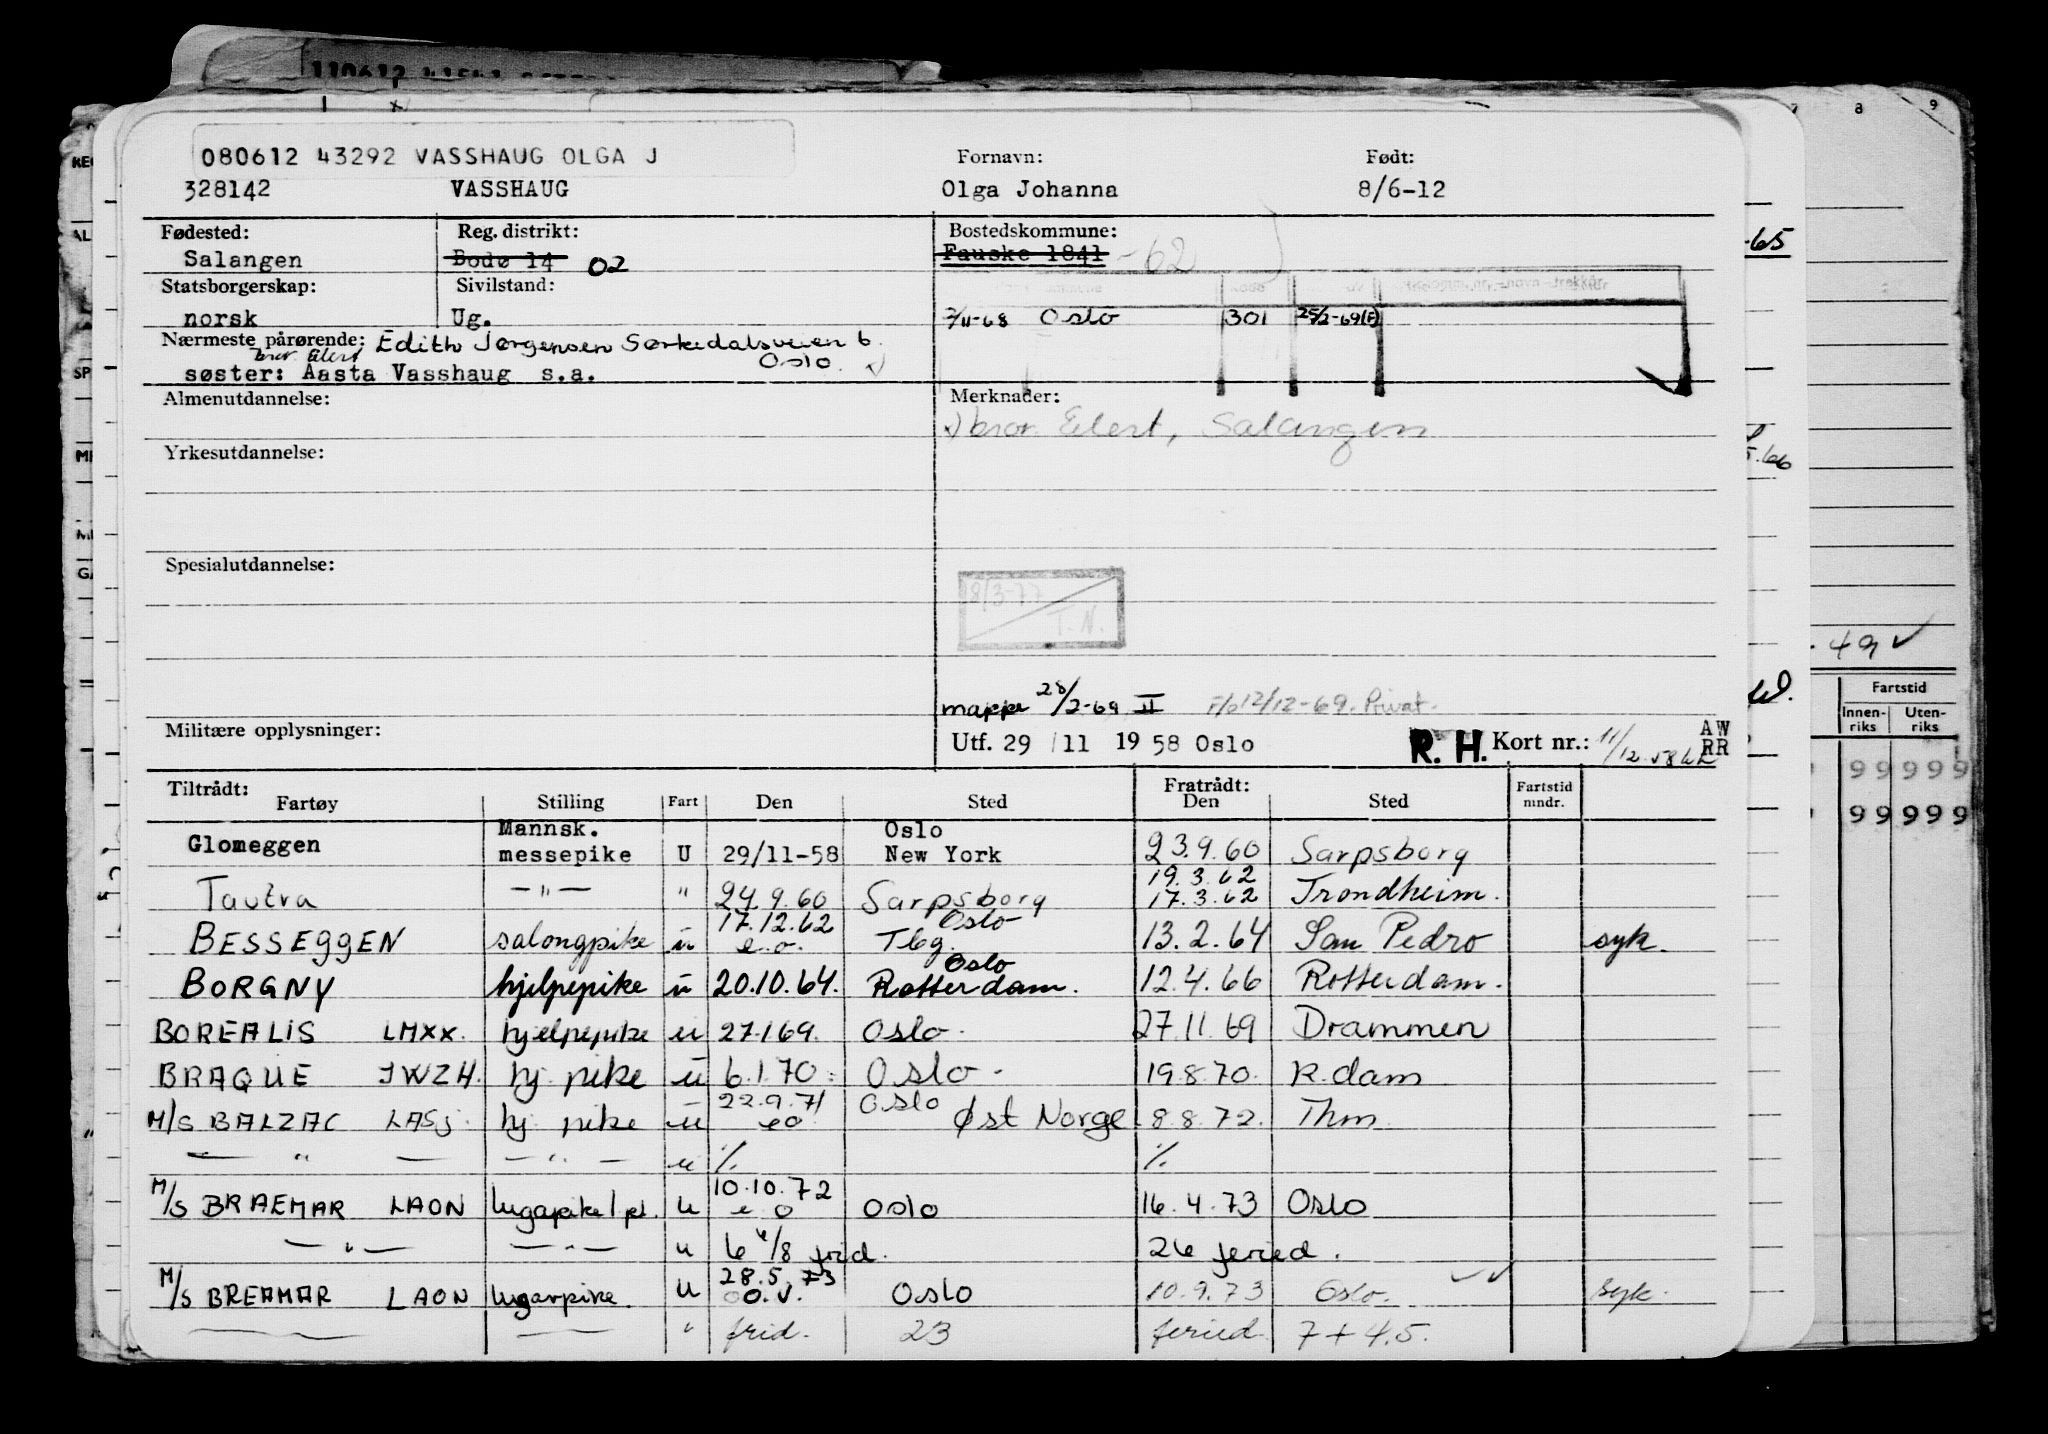 080612 43292 VASSHAUG OLGA J
Fornavn: Født:
328142 VASSHAUG Olga Johanna 8/6-12
Fødested: Reg. distrikt: Bostedskommune:
Salangen Bodø 14 02 Fauske 1841 -62
Statsborgerskap: Sivilstand:
norsk Ug. 7/11-68 Oslo 301 25/2-69(F)
Nærmeste pårørende: Edith Jørgensen Sørkedalsveien 6
bror Eilert Oslo.
søster: Aasta Vasshaug s.a.
Almenutdannelse: Merknader:
bror Eilert, Salangen
Yrkesutdannelse:
Spesialutdannelse:
18/3-77
T.N.
mappe 28/2-69 II F/b12/12-69. Privat.
Militære opplysninger: Utf. 29 / 11 19 58 Oslo R. H. Kort nr.: 11/12.58 AW RR
Tiltrådt: Fratrådt: Fartstid mndr.
Fartøy Stilling Fart Den Sted Den Sted
Glomeggen Mannsk. messepike U 29/11-58 Oslo New York 23.9.60 Sarpsborg
Tautra —"— " 24.9.60 Sarpsborg 19.3.62 17.3.62 Trondheim.
BESSEGGEN salongpike u 17.12.62 e.o. Oslo Tbg. 13.2.64 San Pedro syk.
BORGNY hjelpepike u 20.10.64. Oslo Rotterdam. 12.4.66 Rotterdam.
BOREALIS LMXX. hjelpepike u 27.1 69. Oslo. 27.11.69 Drammen
BRAQUE JWZH. hj. pike u 6.1.70. Oslo. 19.8.70. R.dam
M/S BALZAC LASJ. hj. pike u 22.9.71 eo Oslo Øst Norge 8.8.72. Thm.
— " — — " — u % %
M/S BRAEMAR LAON lugapike/pt. u 10.10.72 e.o Oslo 16.4.73 Oslo
— " — — " — u 6 4/8 frid. 26 feried.
M/S BREAMAR LAON lugarpike. u 28.5.73 O.V. Oslo 10.9.73 Oslo. syk.
" frid. 23 feried 7 + 4.5.
7 8 9
-65
5.66
49
Fartstid
Innenriks Utenriks
9 9 9 9 9
9 9 9 9 9